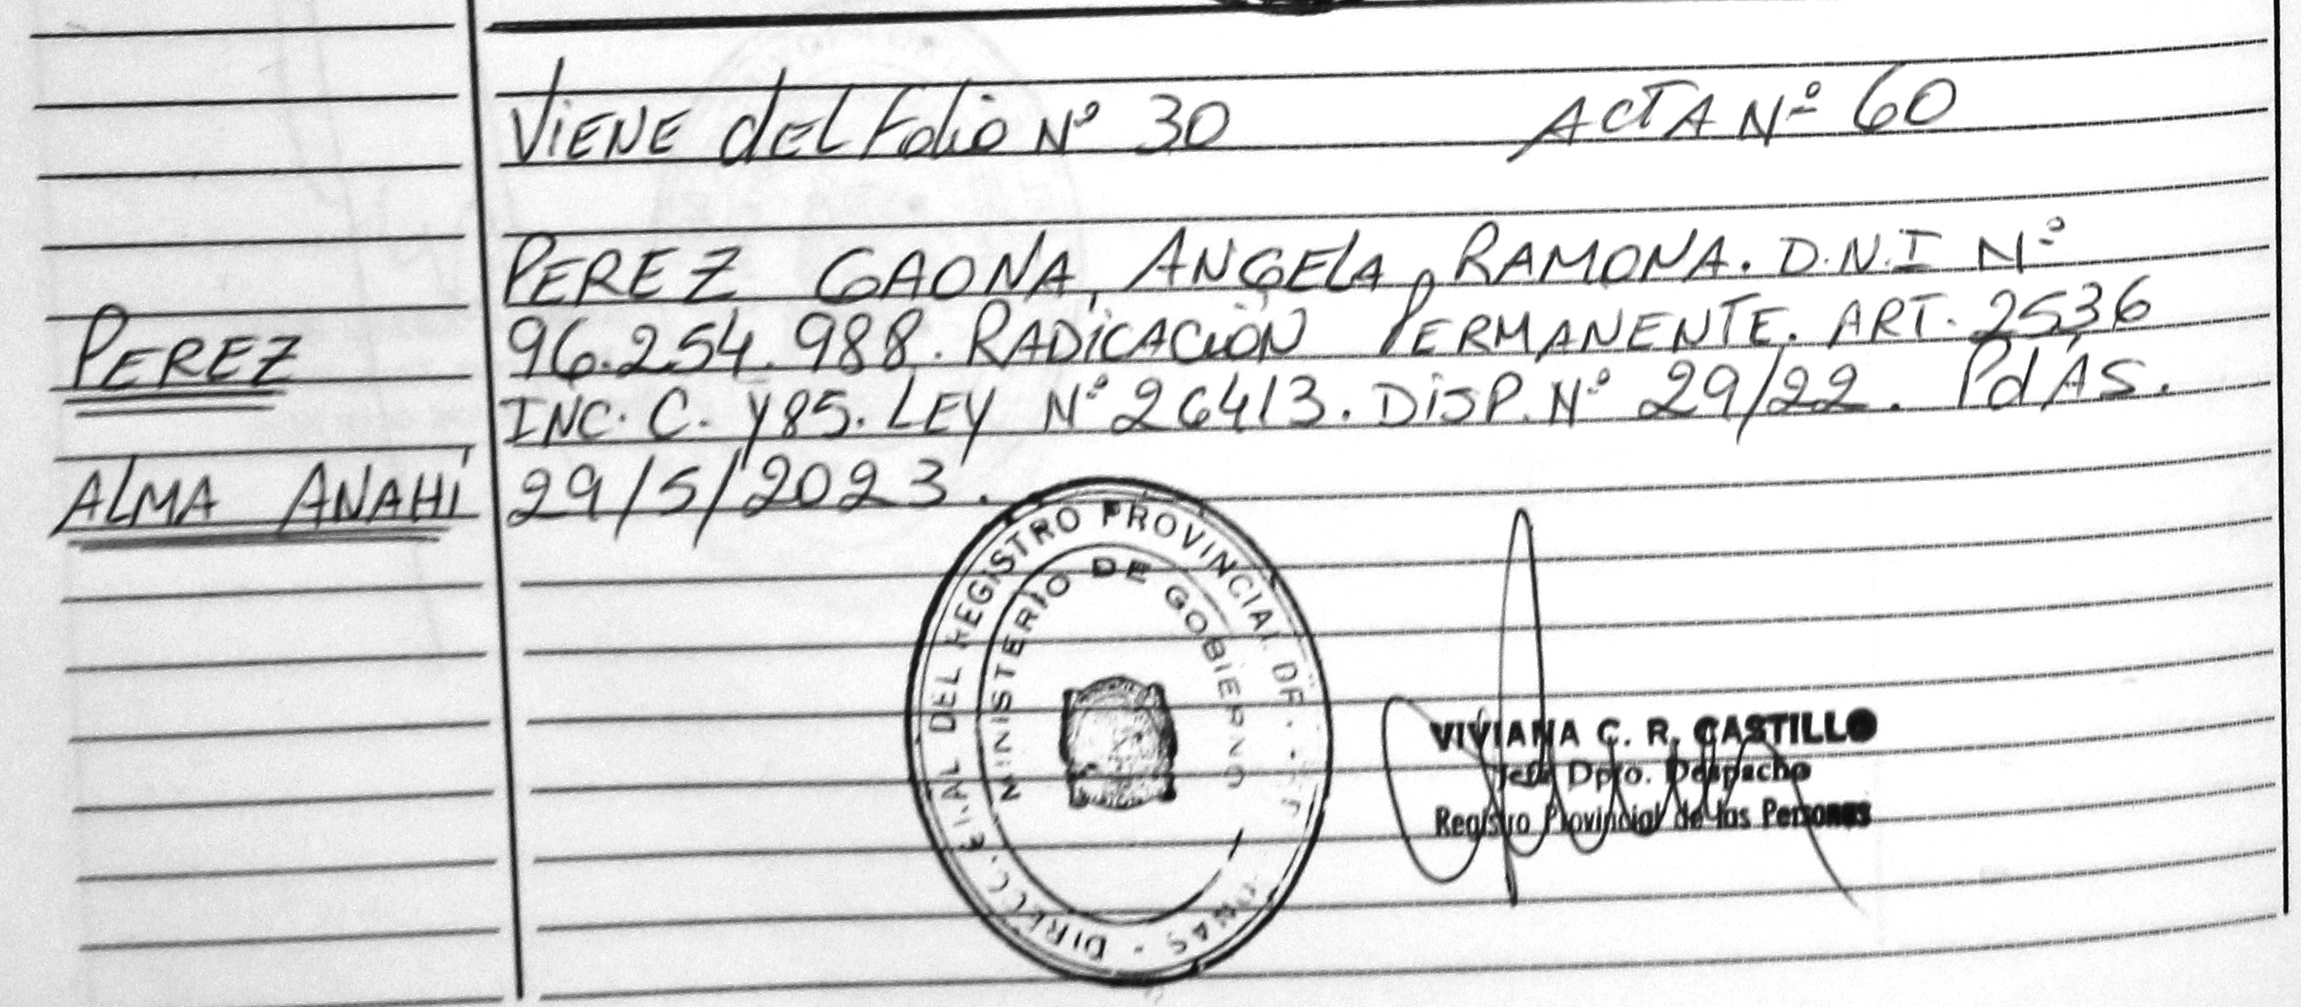 Viene del Folio Nº 30 ACTA Nº 60
PEREZ GAONA, ANGELA RAMONA. D.N.I Nº
PEREZ
96.254.988. RADICACIÓN PERMANENTE. ART. 2536
INC. C. Y85. LEY Nº 26413. DISP. Nº 29/22. PdAS.
ALMA ANAHÍ
29/5/2023.
DEL REGISTRO PROVINCIAL DE
MINISTERIO DE GOBIERNO
VIVIANA C. R. CASTILLO
Jefe Dpto. Despacho
Registro Provincial de las Personas